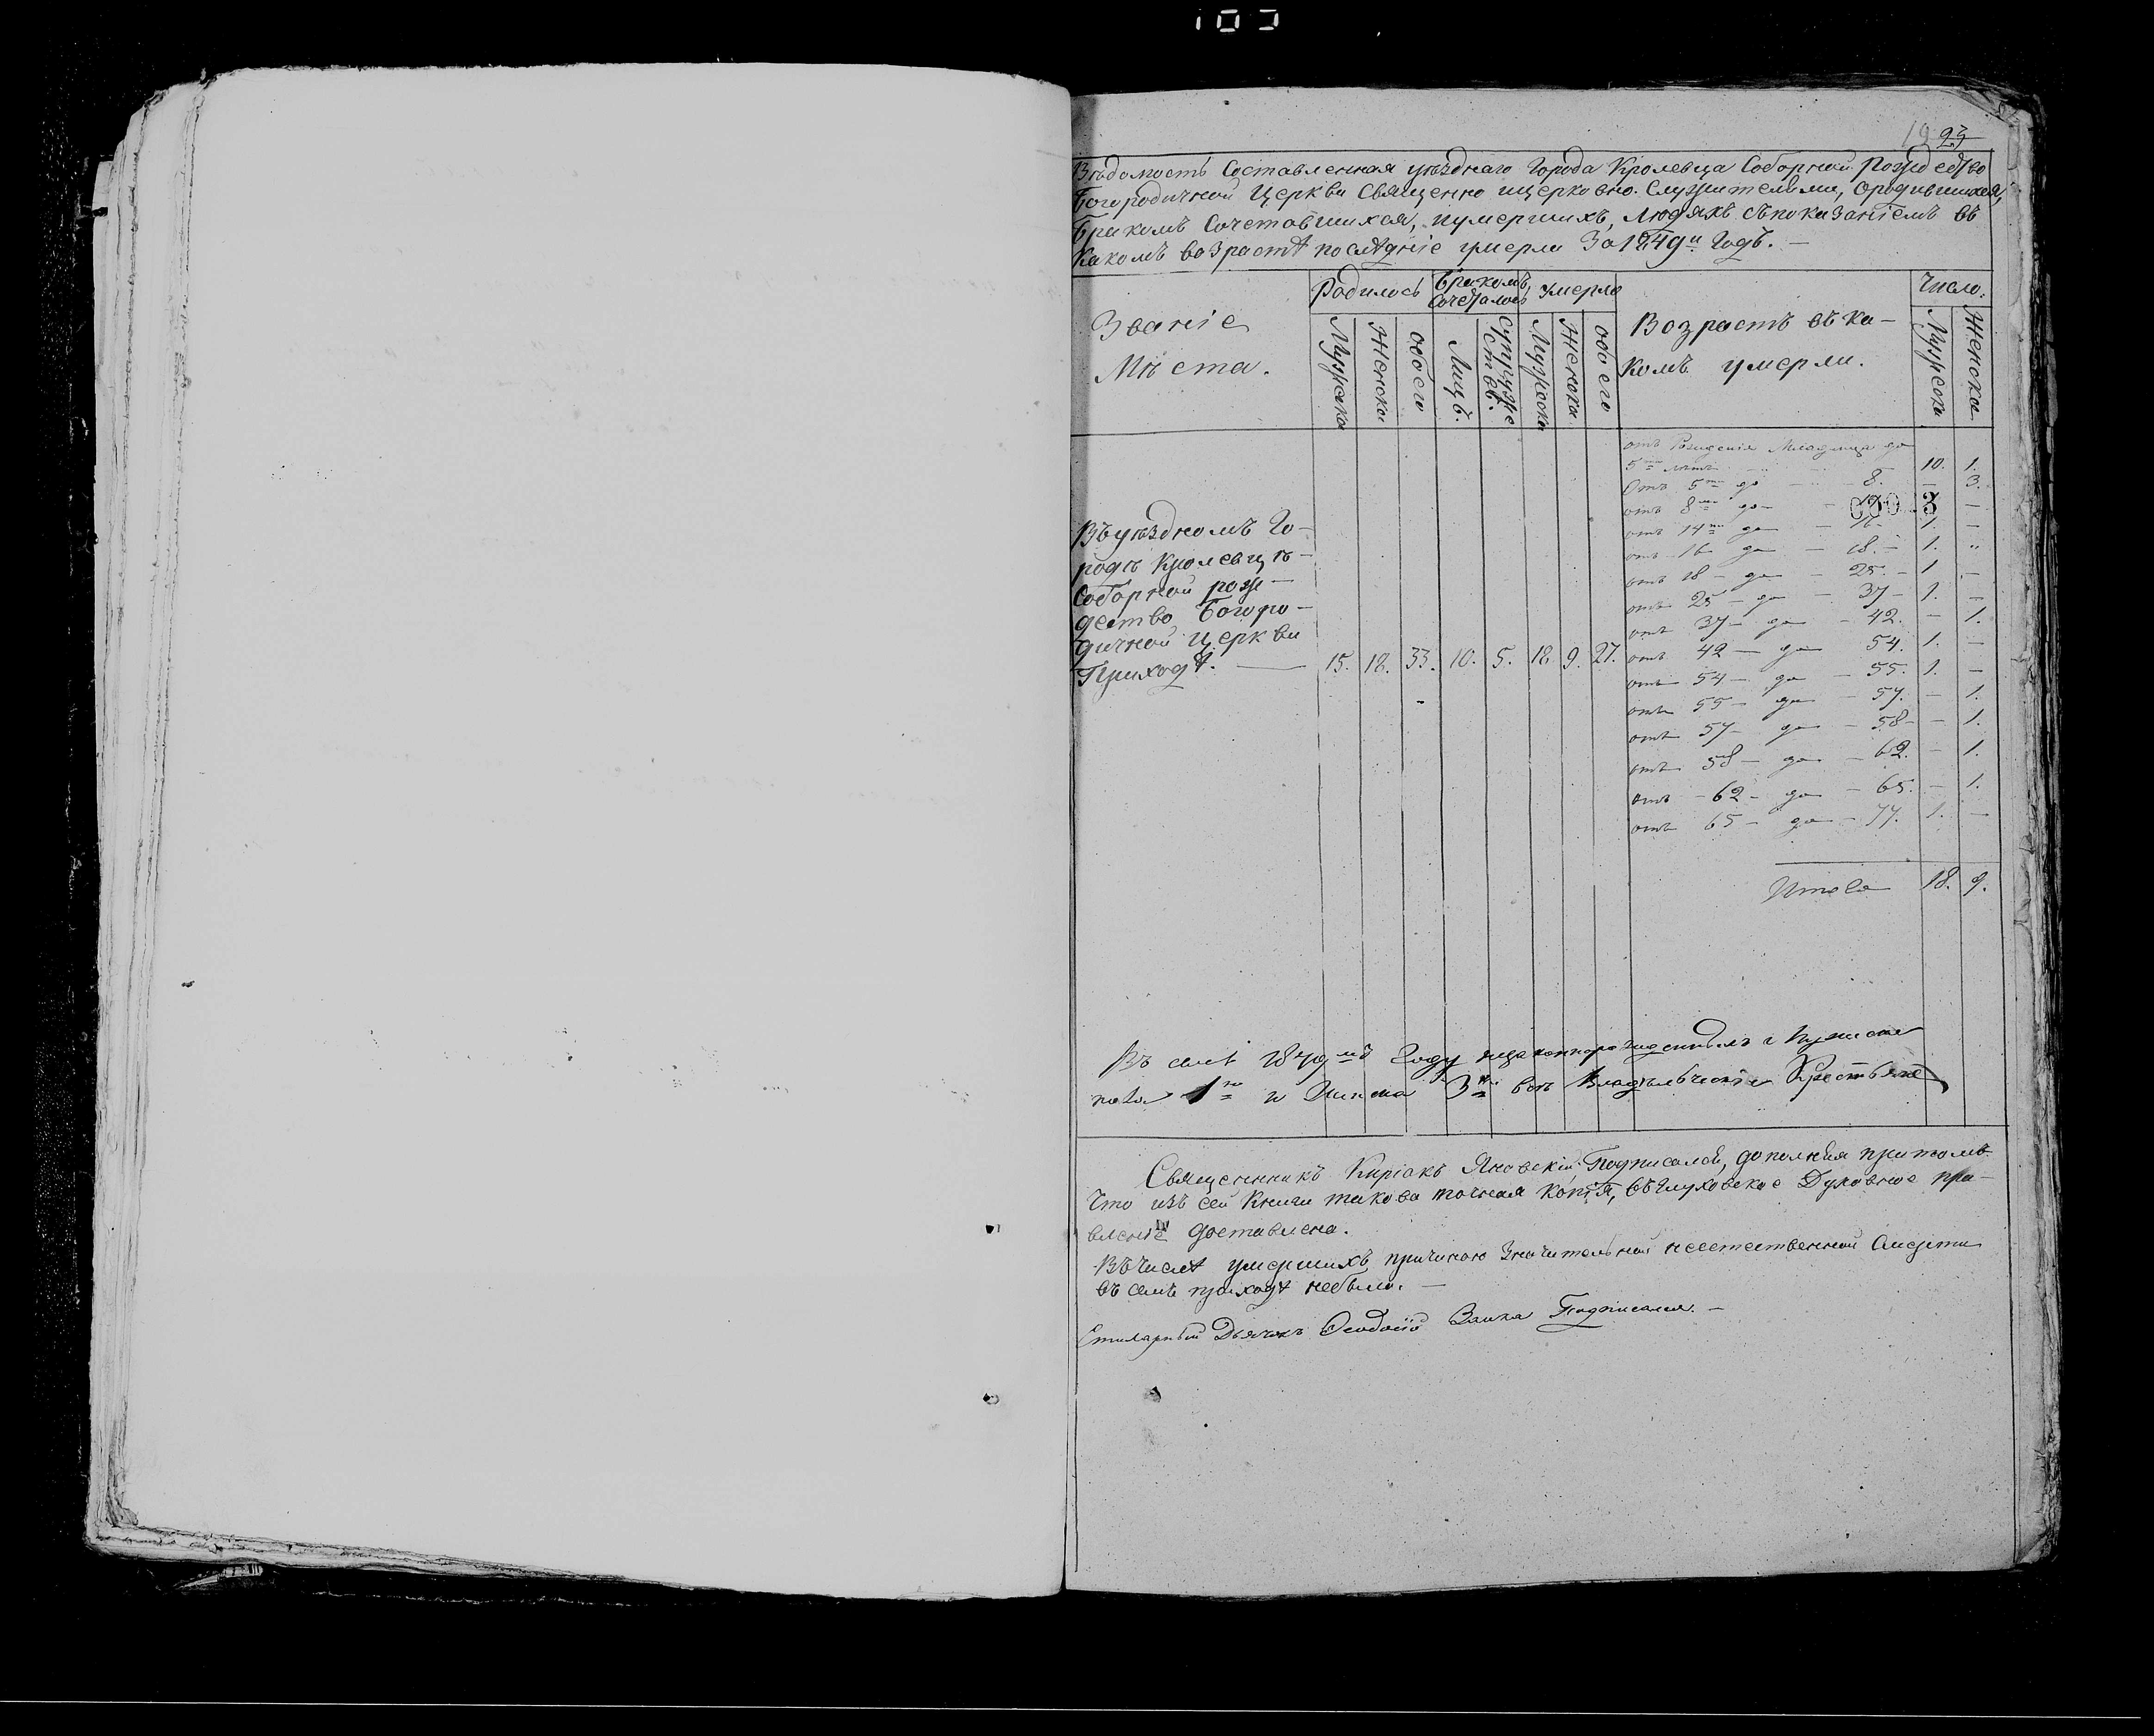 103
19 23
Вѣдомость Составленная уѣзднаго Города Кролевца Соборной Рождество
Богородичной Церкви Священно ицерковно. Служителями, ородившихся,
Бракомъ Сочетавшихся, иумершихъ, Людяхъ съпоказаніемъ въ
Какомъ возрастѣ послѣдніе умерли За 1849й Годъ. —
Званіе Мѣста.
Родилось
Бракомъ Сочеталось
Умерло
Возрастъ въ ка-
комъ умерли.
Число.
Мужска Женска обоего Лицъ. Супружествъ. Мужска Женска обоего Мужеска Женска
отъ Рожденія Младенца до
5ти лѣтъ 10. 1.
Отъ 5ти до — 8. — 3.
отъ 8ми до —
000 3
отъ 14ти до — 16 1. —
отъ 16 до — 18. — 1. „
отъ 18 — до — 25. — 1 —
отъ 25 — до — 37 — 1. —
отъ 37 — до — 42. — 1.
отъ 42 — до 54. 1. —
отъ 54 — до — 55. 1. —
отъ 55 — до — 57. — 1.
отъ 57 — до — 58 — — 1.
отъ 58 — до — 62. — 1.
отъ — 62 — до — 65. — 1.
отъ 65 — до — 77. 1. —
Итого 18. 9.
Въ уѣздномъ Го-
родѣ Кролевцѣ
Соборной рож-
дество Богоро-
дичной Церкви
Приходѣ. — 15. 18. 33. 10. 5. 18. 9. 27.
Въ семъ 1849мъ Году незаконнорожденныхъ
пола 1 и Женска 3 Владѣльческіе Крестьяне
Священникъ Киріакъ Яновскій Подписался, дополняя притомъ
Что изъ сей Книги такова точная копія, въ Глуховское Духовное пра-
вленіе доставлена.
Въ Числѣ умершихъ причиною Значительной неестественной Смерти
въ семъ приходѣ небыло. —
Дьячокъ Феодосій Заика Подписался. —